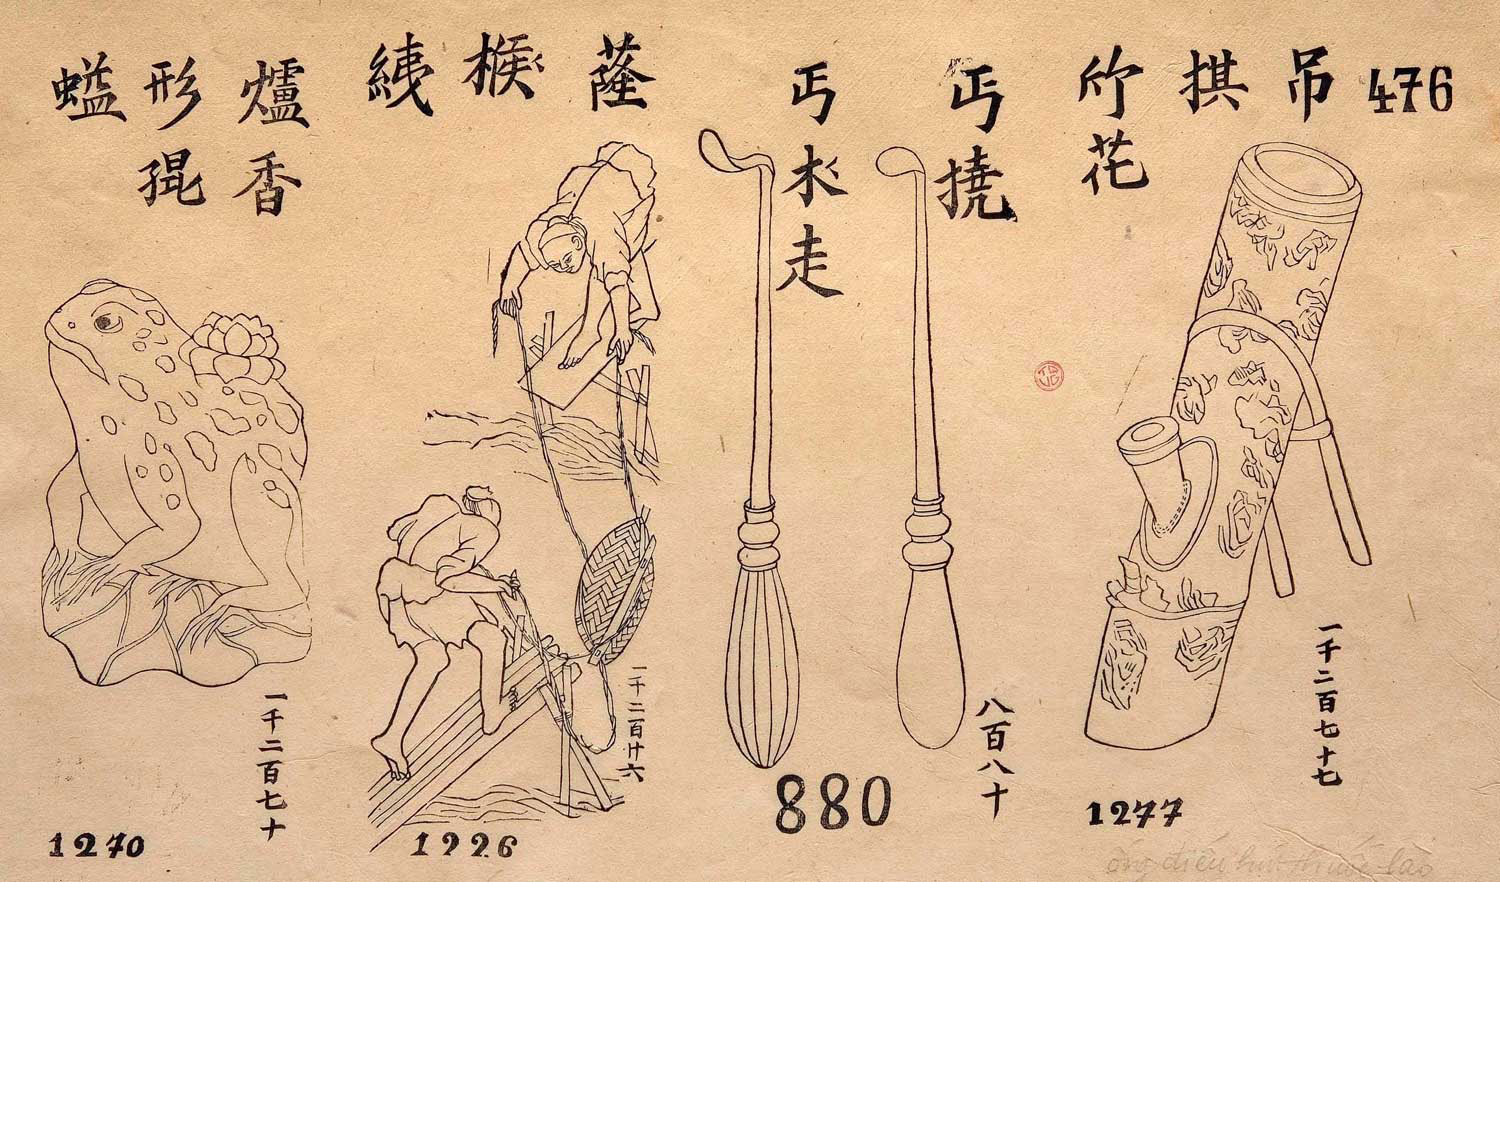 476
吊拱竹花
丐撓
丐木走
蕯𣖖綫
香爐形
蜢
一千二百七十七
1277
八百八十
880
一千二百廿六
1226
一千二百七十
1270
ống điếu hút thuốc lào